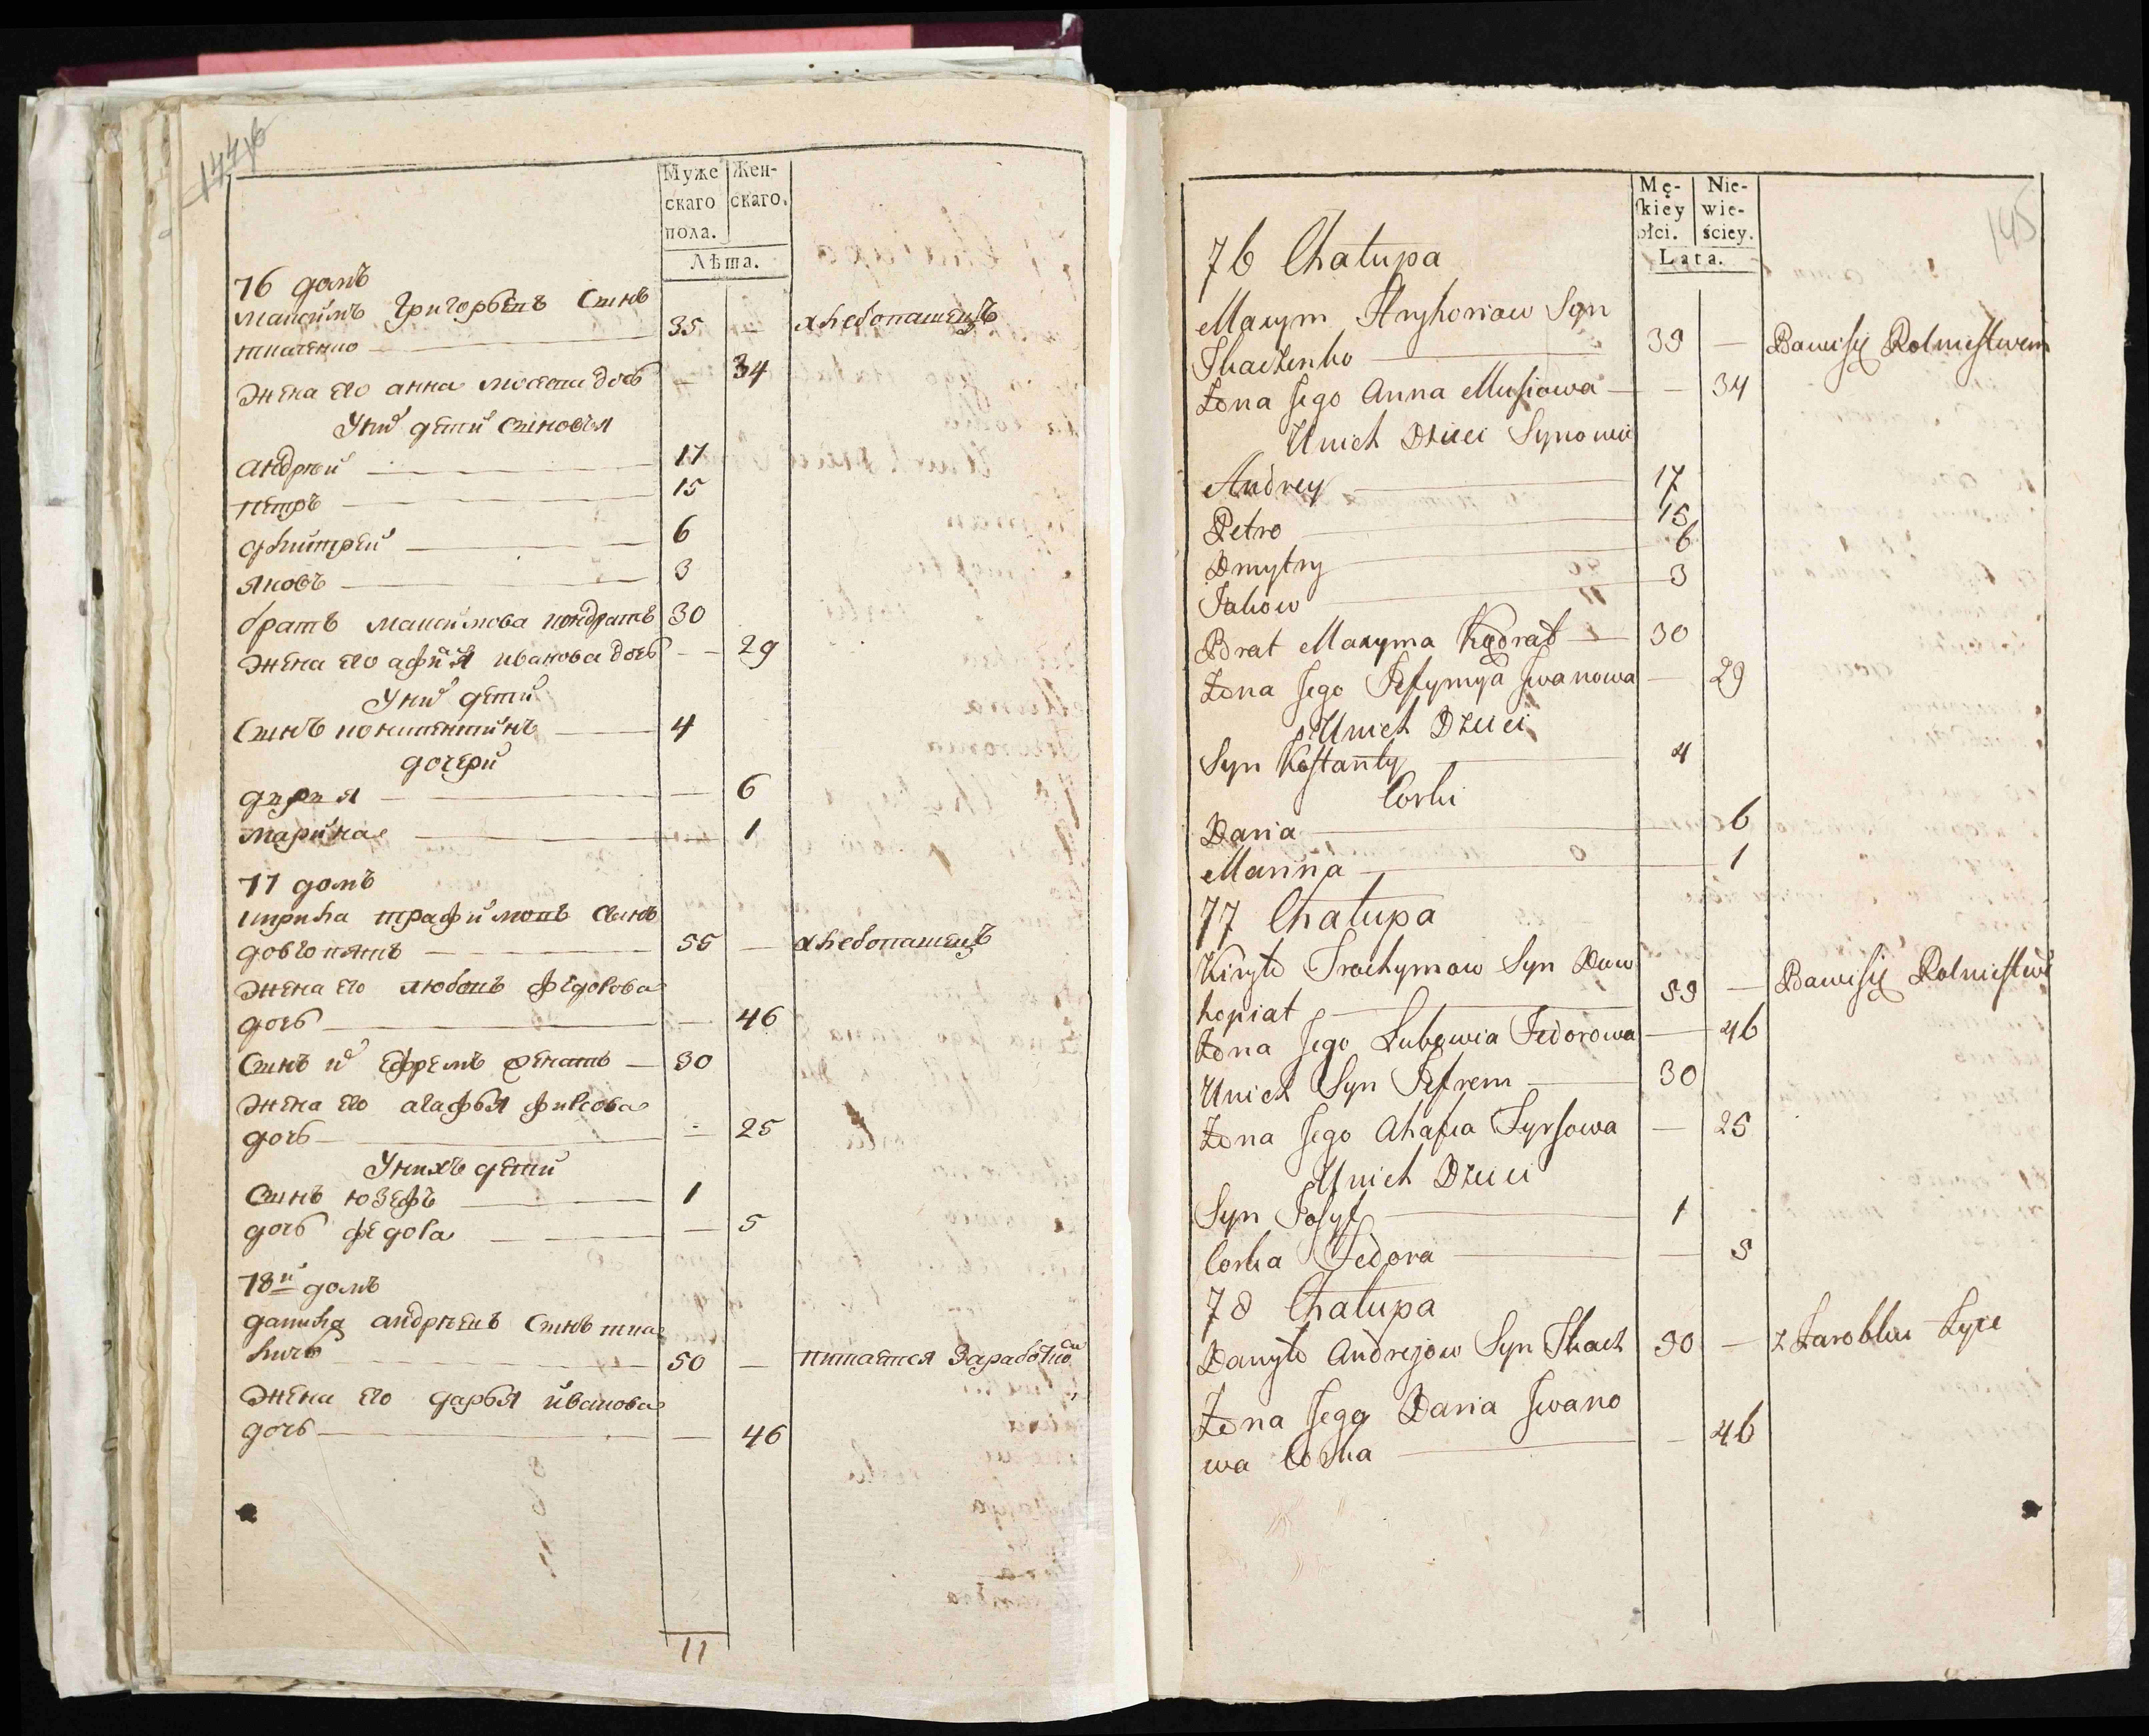 144об
Муже
скаго
пола.
Жен-
скаго.
Лѣта.
76 домъ
Максимъ Григорьевъ Сынъ
ткаченко 35 — хлебопашецъ
жена его анна мосеева дочь — 34
У них дети Сыновья
андрей 17
петръ 15
дмитрей 6
яковъ 3
братъ максимова кондратъ 30
жена его афимия иванова дочь — 29
У них дети
Сынъ константинъ 4
дочери
дарья — 6
марина — 1
77 домъ
кирила трафимовъ Сынъ
довгопятъ 55 — хлебопашецъ
жена его любовь федорова
дочь — 46
Сынъ их ефремъ женатъ — 30
жена его агафья фирсова
дочь — 25
У нихъ дети
Сынъ юзефъ 1
дочь федора — 5
78й домъ
данила андреевъ Сынъ тка
личь 50 — питается Заработкоси
жена его дарья иванова
дочь — 46
11
145
Mę-
skiey
płci.
Nie-
wie-
ściey.
Lata.
76 Chałupa
Maxym Hryhoriow Syn
Tkaczenko 35 — Bawi się Rolnictwem
Żona Jego Anna Musiowa — 34
U nich Dzieci Synowie
Andrey 17
Petro 15
Dmytry 6
Jakow 3
Brat Maxyma Kądrat — 30
Żona Jego Jefymya Iwanowa — 29
U nich Dzieci
Syn Kostanty 4
Corki
Daria 6
Marina 1
77 Chałupa
Kiryło Trochymow Syn Dow
hopiat 55 — Bawi się Rolnictwe
Żona Jego Lubowia Fedorowa — 46
U nich Syn Jefrem 30
Żona Jego Ahafia Fyrsowa — 25
U nich Dzieci
Syn Josyf 1
Corka Fedora — 5
78 Chałupa
Danyło Andrejow Syn Tkacz 50 — z Zarobku Żyie
Żona Jego Daria Iwano
wa Corka — 46